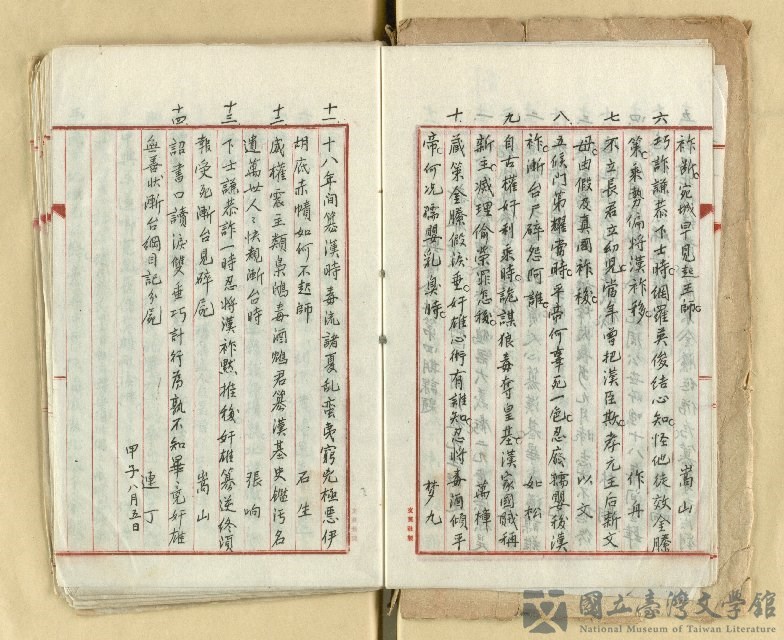 五 祚斷宛城早見起王師 嵩山
六 巧詐謙恭下士時網羅英俊結心知怪他徒效金縢
策乘勢偏將漢祚移 作丹
七 不立長君立幼兒當年曾把漢臣欺孝元王后新文
母由假及真國祚移 以文
八 五侯門第耀當時平帝何辜死一色忍廢孺嬰移漢
祚漸台尸碎怨阿誰 如松
九 自古權奸利乘時詭謀狼毒奪皇基漢家國賊稱
新主滅理偷榮罪怎 萬樺
十 藏策金縢假淚垂奸雄心術有誰知忍將毒酒傾平
帝何況孺嬰乳臭時 梦九
十一 十八年间篡漢時毒流諸夏乱蛮夷窮究極惡伊
胡底赤幘如何不起師 石生
十二 威權震主類梟鴟毒酒鴆君篡漢基史鑑污名
遺萬世人々快覩漸台時 張响
十三 下士謙恭詐一時忍將漢祚黙推移奸雄篡逆終須
報受死漸台見碎屍 嵩山
十四 詔書口讀淚雙垂巧計行為孰不知畢竟奸雄
無善状漸台綱目記分屍 連丁
甲子八月五日
國立臺灣文學館
National Museum of Taiwan Literature